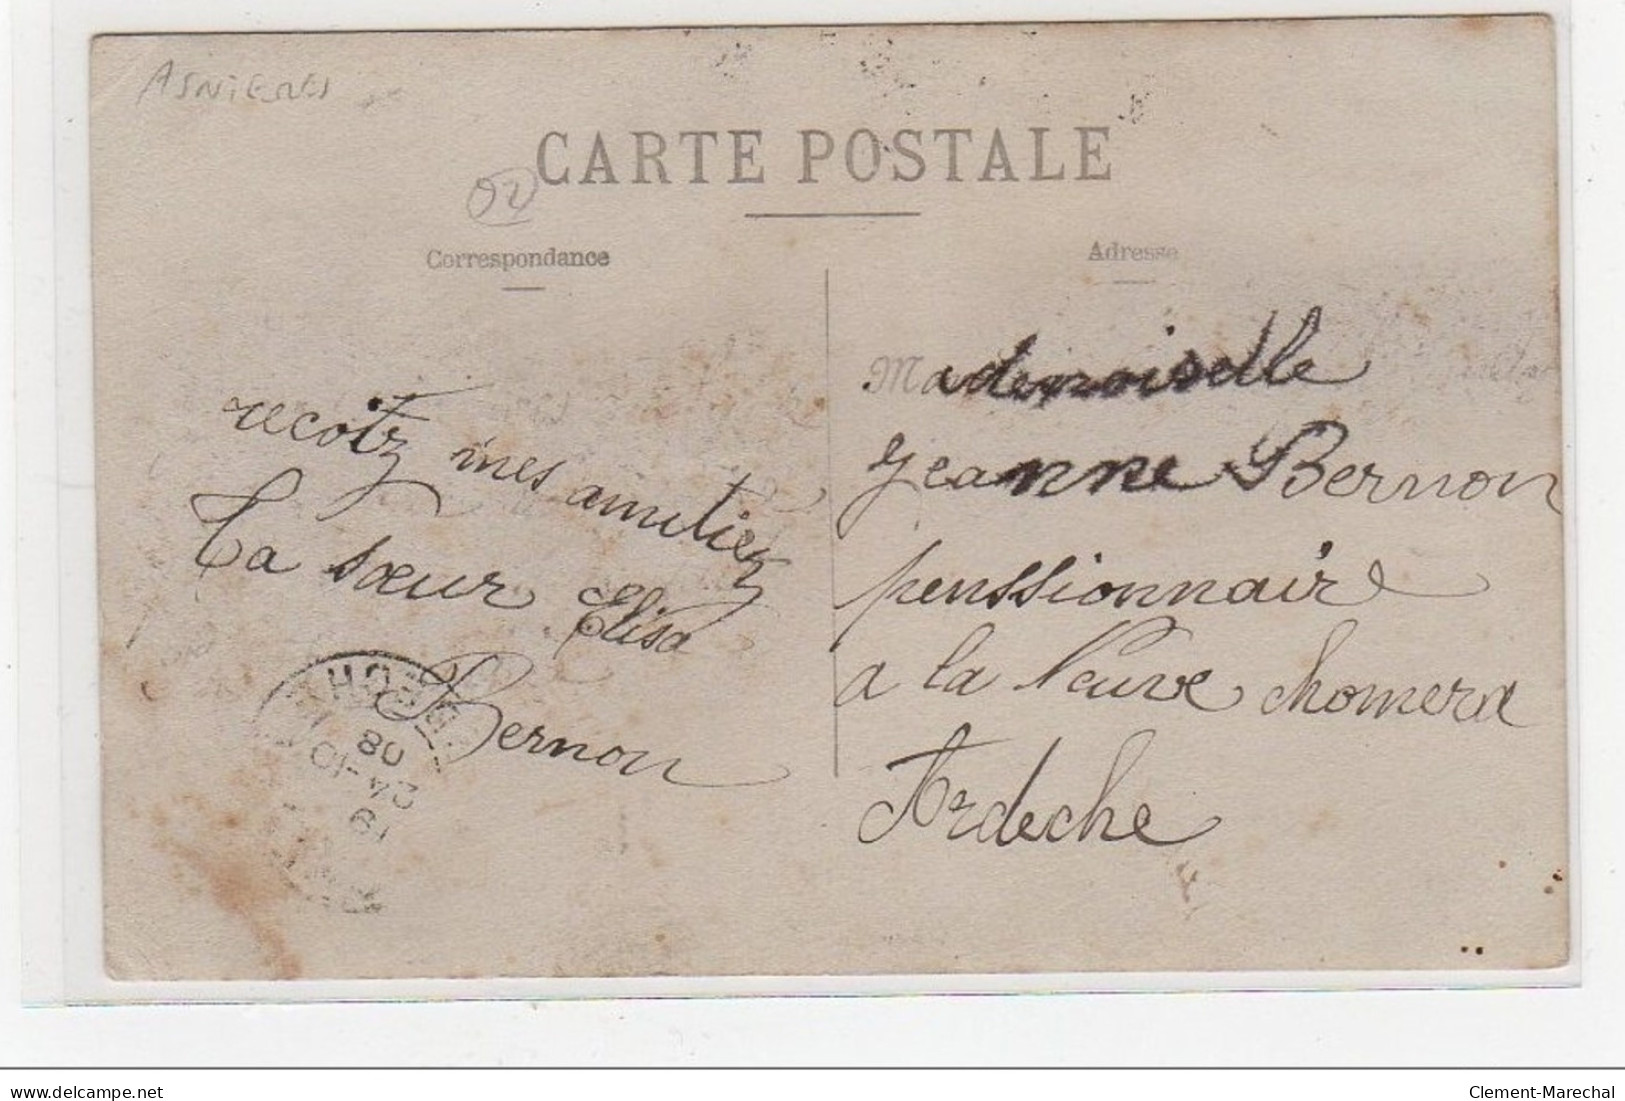 ASNIERES
CARTE POSTALE
02
Correspondance
Adresse
recoitz mes amitiez
Ta sœur Elisa
Bernon
Mademoiselle
Jeanne Bernon
penssionnaire
a la Neuve chomera
Ardeche
08
delcampe.net
Clement-Marechal